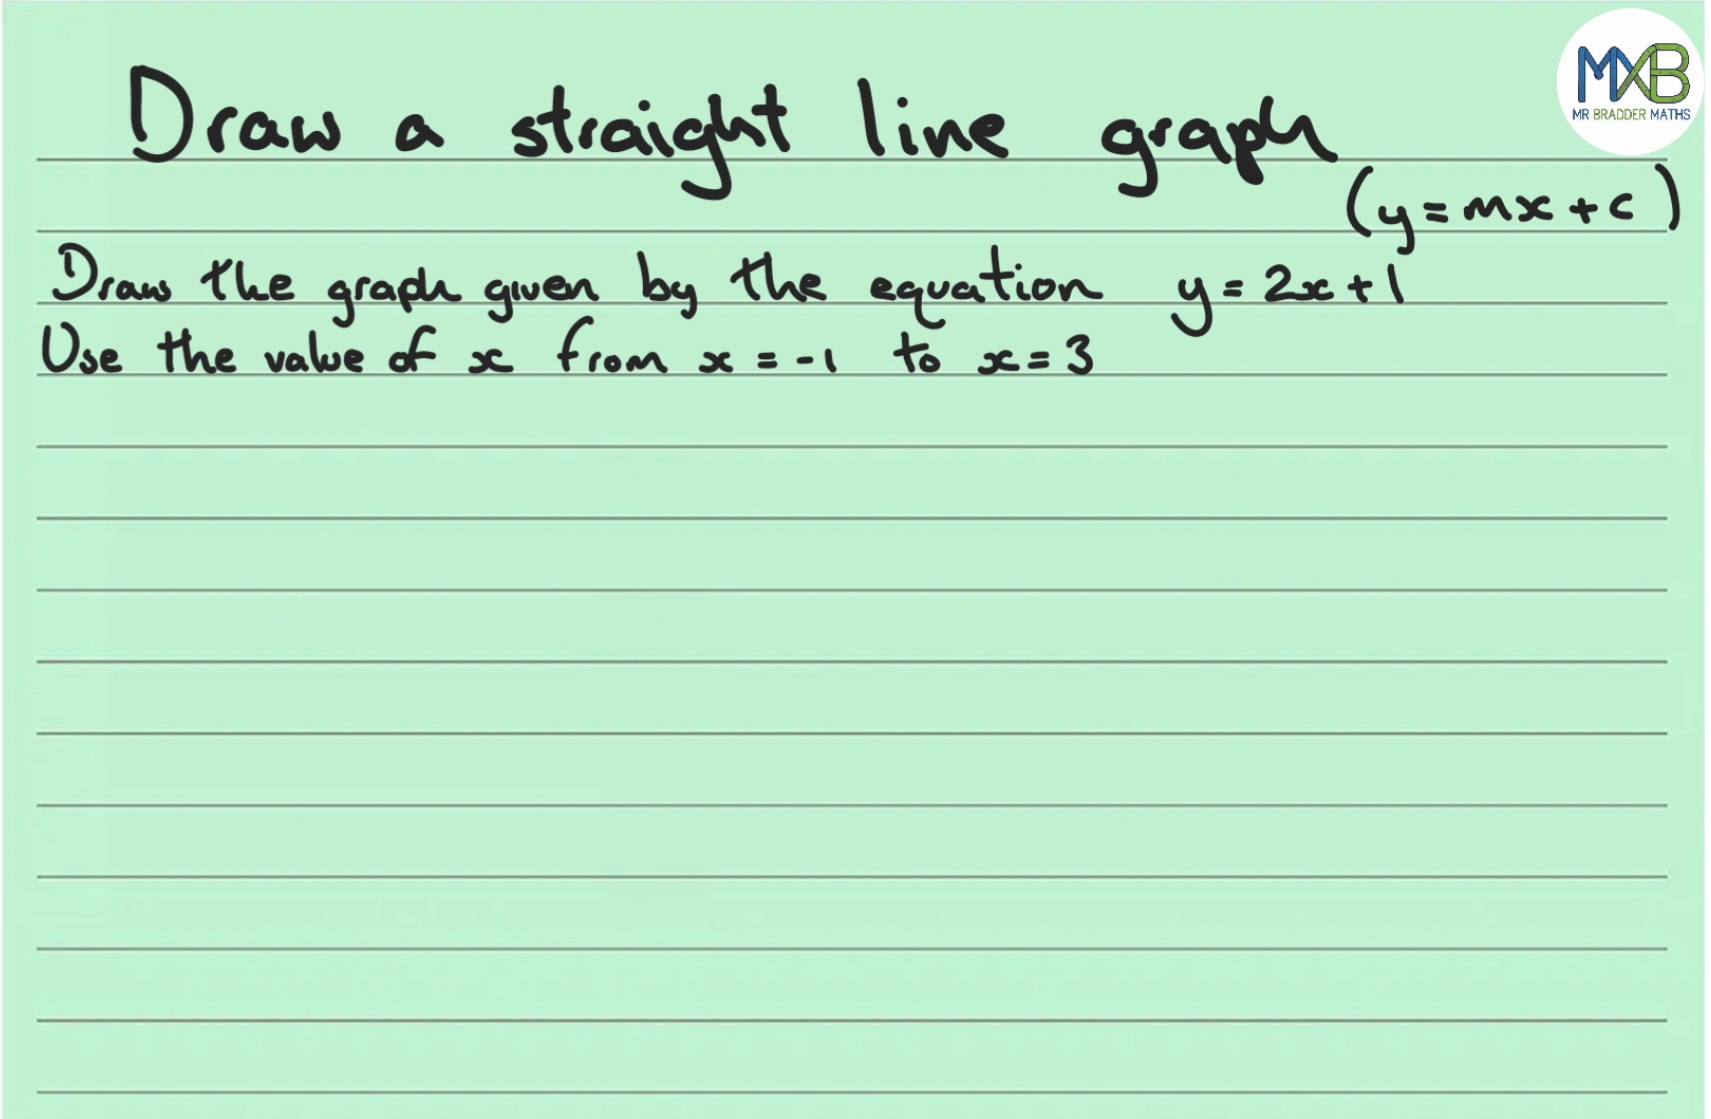 MXB
MR BRADDER MATHS
Draw a straight line graph
(y=mx+c)
Draw the graph given by the equation y=2x+1
Use the value of x from x=-1 to x=3